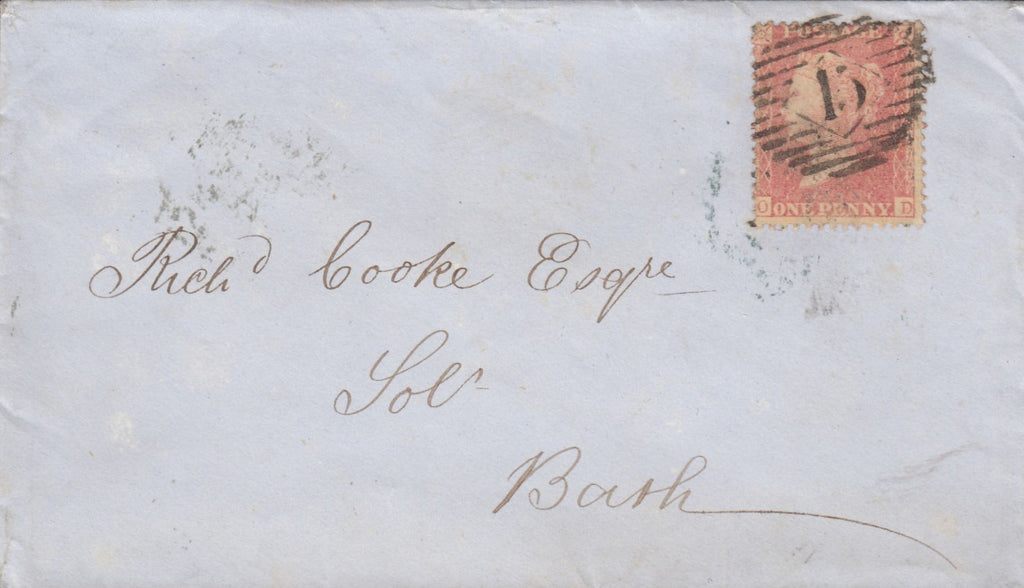 POSTAGE
O ONE PENNY D
Rich^d Cooke Esq^re
Sol^r
Bath